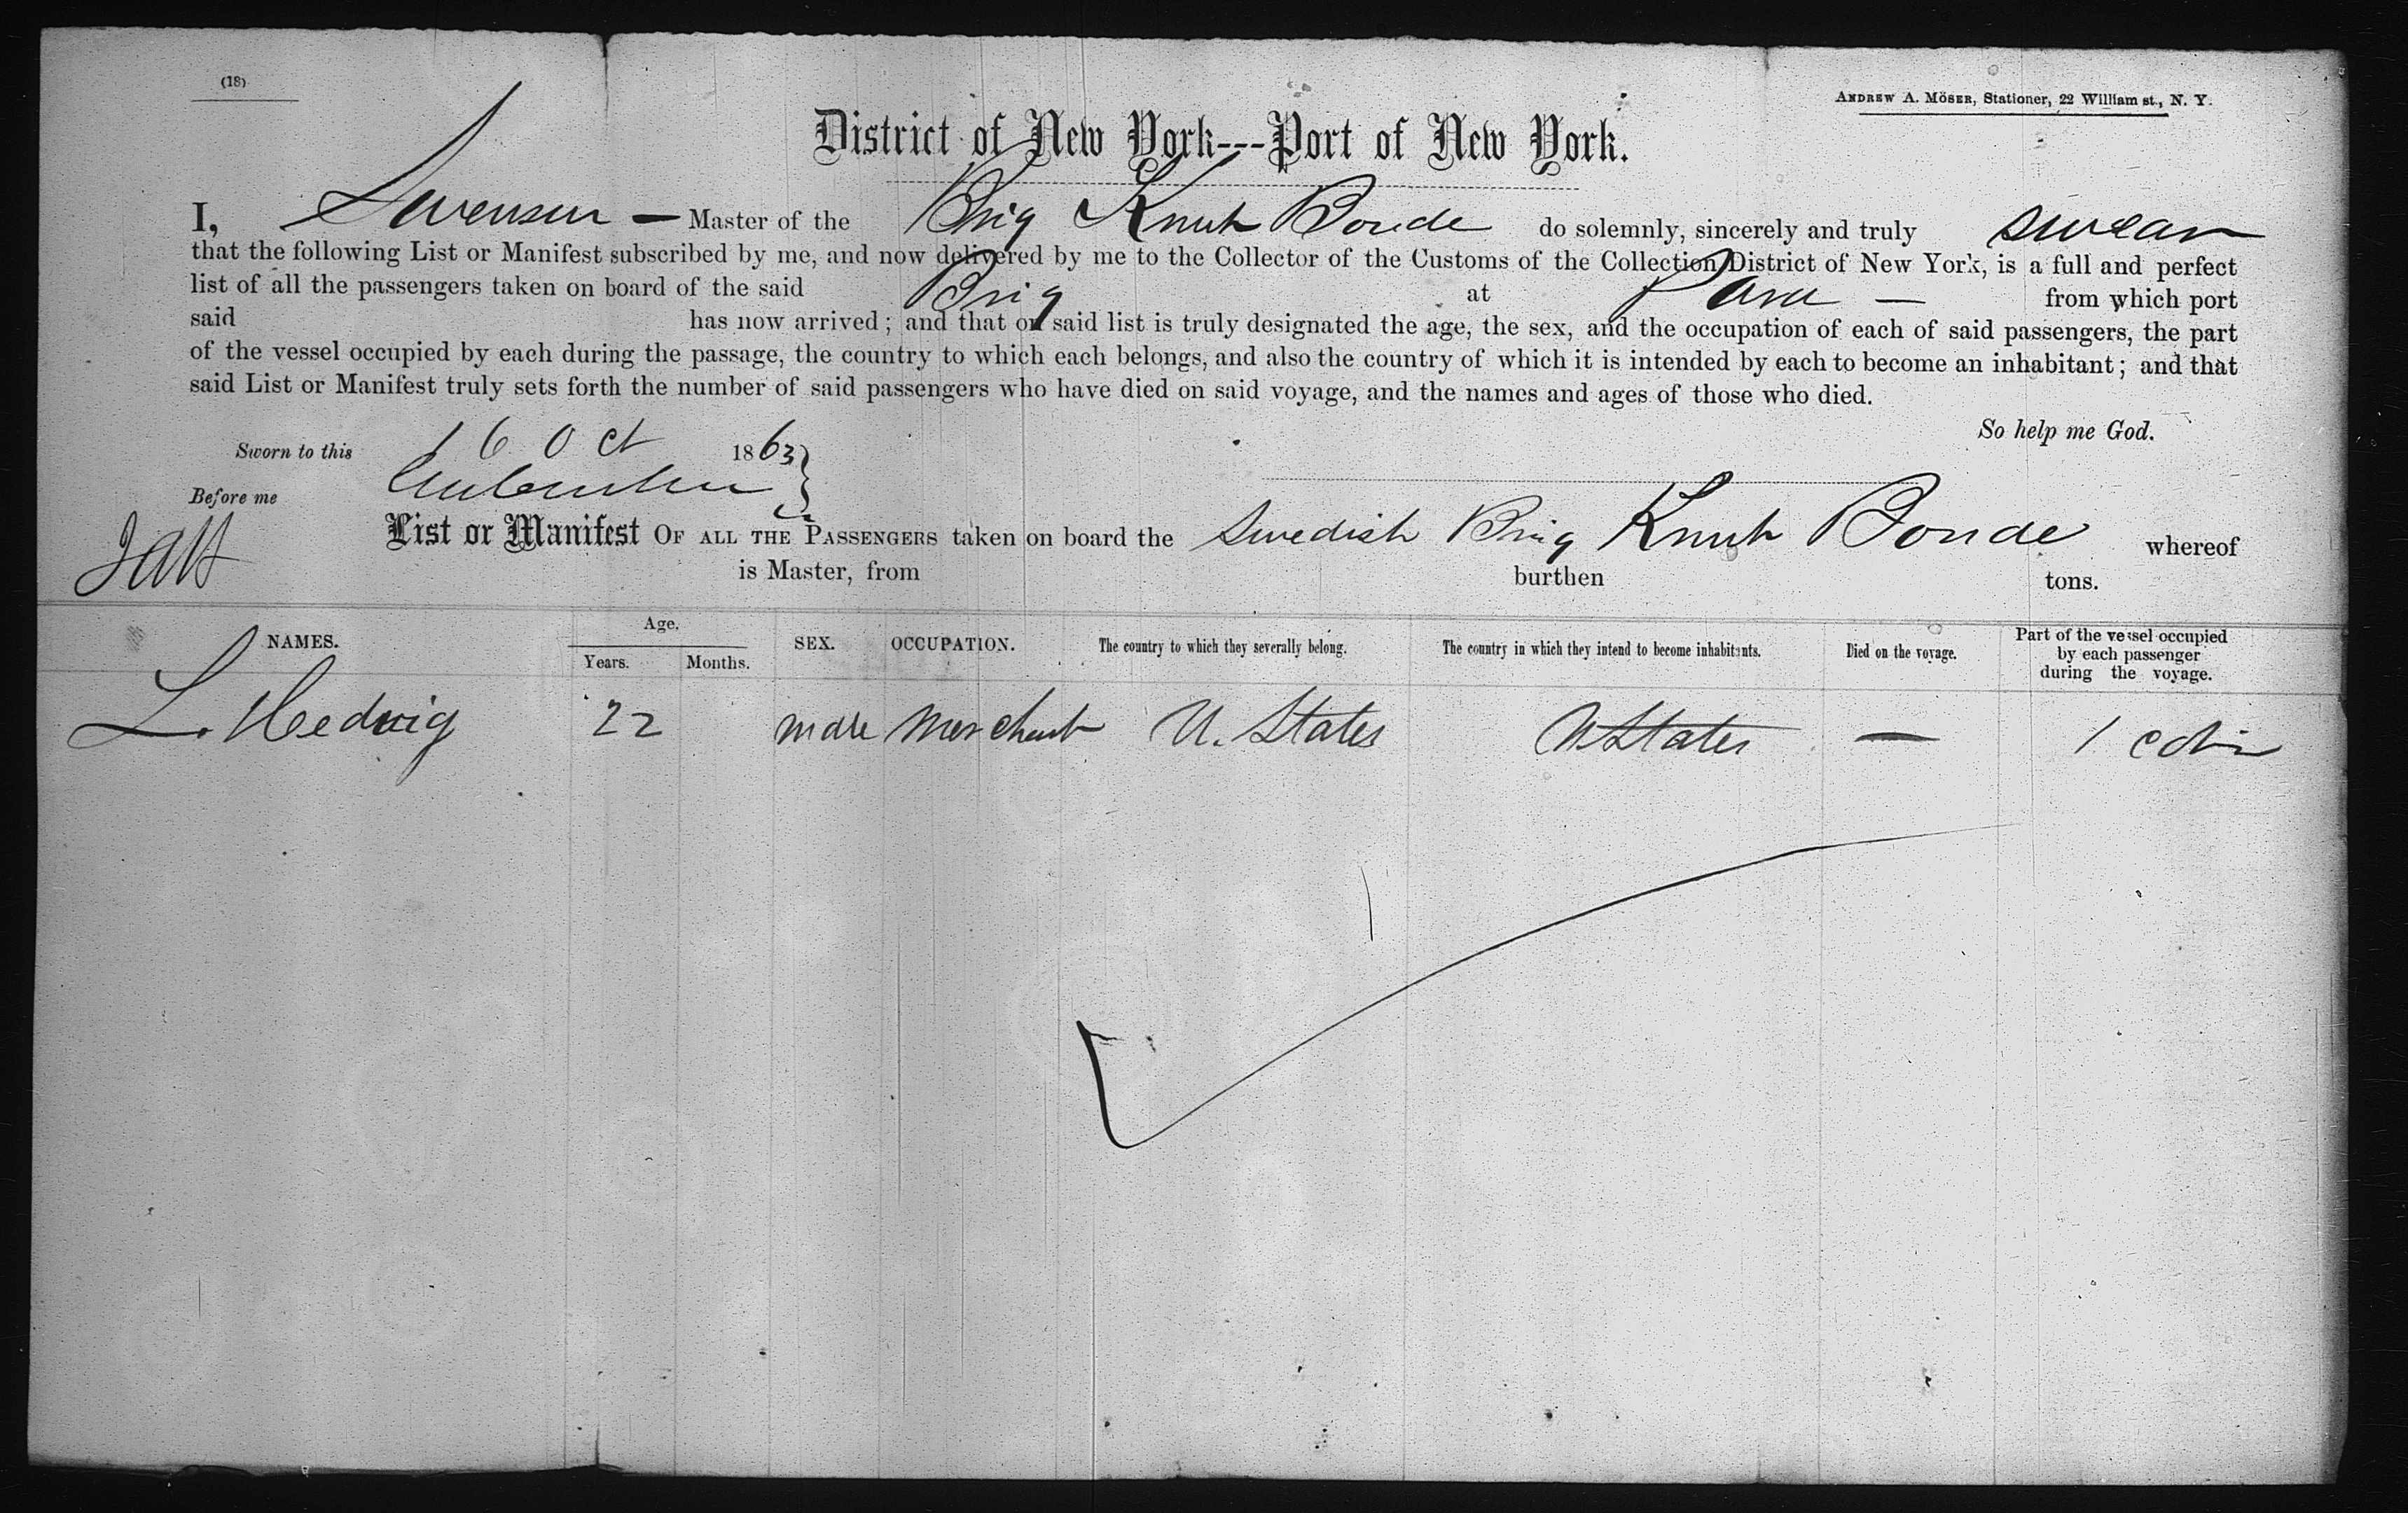 (18)
ANDREW A. MÖSER, Stationer, 22 William st., N. Y.
District of New York---Port of New York.
I, Swensen — Master of the Brig Knut Bonde do solemnly, sincerely and truly swear
that the following List or Manifest subscribed by me, and now delivered by me to the Collector of the Customs of the Collection District of New York, is a full and perfect
list of all the passengers taken on board of the said Brig at Para — from which port
said has now arrived; and that on said list is truly designated the age, the sex, and the occupation of each of said passengers, the part
of the vessel occupied by each during the passage, the country to which each belongs, and also the country of which it is intended by each to become an inhabitant; and that
said List or Manifest truly sets forth the number of said passengers who have died on said voyage, and the names and ages of those who died.
So help me God.
Sworn to this 16 Oct 1863
Before me
List or Manifest OF ALL THE PASSENGERS taken on board the Swedish Brig Knut Bonde whereof
is Master, from burthen tons.
NAMES. Age. Years. Months. SEX. OCCUPATION. The country to which they severally belong. The country in which they intend to become inhabitants. Died on the voyage. Part of the vessel occupied by each passenger during the voyage.
L. Hedwig 22 male Merchant U. States U States — 1 cabin